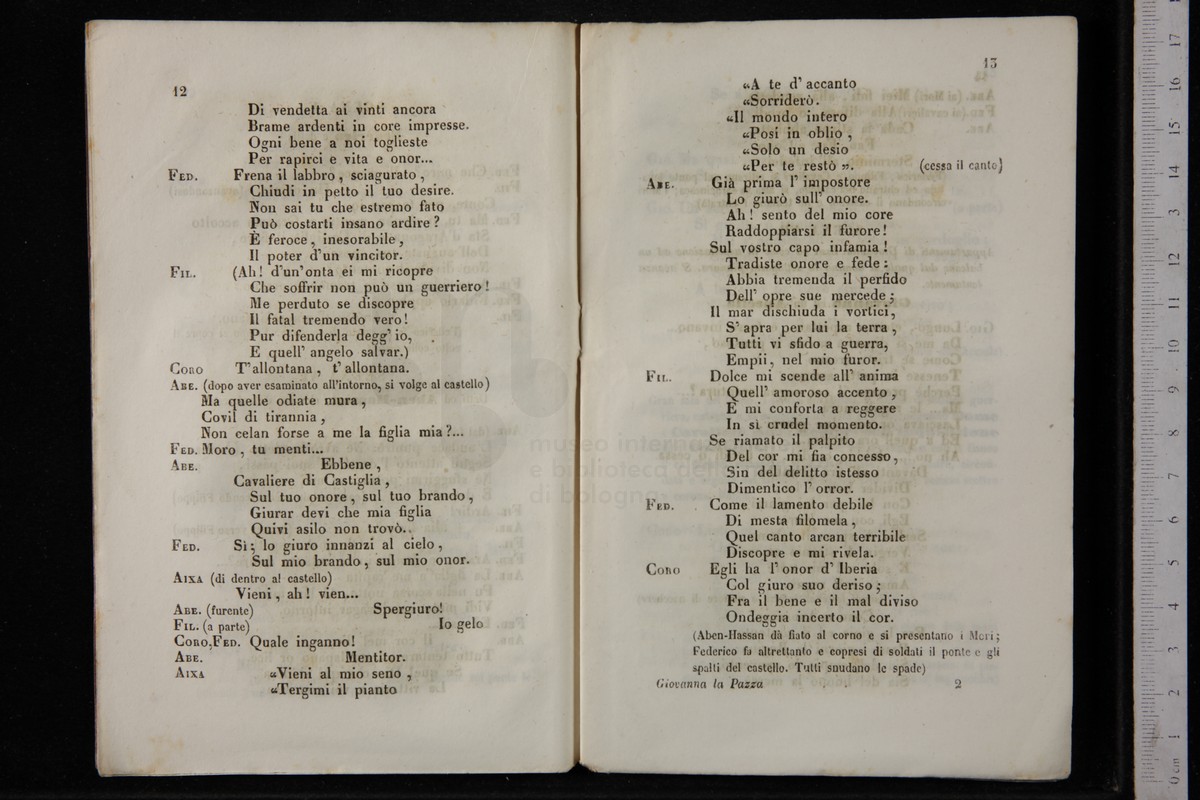 12
Di vendetta ai vinti ancora
Brame ardenti in core impresse.
Ogni bene a noi toglieste
Per rapirci e vita e onor...
FED. Frena il labbro , sciagurato ,
Chiudi in petto il tuo desire.
Non sai tu che estremo fato
Può costarti insano ardire ?
È feroce , inesorabile ,
Il poter d'un vincitor.
FIL. (Ah! d'un'onta ei mi ricopre
Che soffrir non può un guerriero !
Me perduto se discopre
Il fatal tremendo vero!
Pur difenderla degg' io,
E quell' angelo salvar.)
CORO T'allontana , t'allontana.
ABE. (dopo aver esaminato all'intorno, si volge al castello)
Ma quelle odiate mura ,
Covil di tirannia ,
Non celan forse a me la figlia mia ?...
FED. Moro , tu menti...
ABE. Ebbene ,
Cavaliere di Castiglia ,
Sul tuo onore , sul tuo brando ,
Giurar devi che mia figlia
Quivi asilo non trovò..
FED. Sì; lo giuro innanzi al cielo ,
Sul mio brando , sul mio onor.
AIXA (di dentro al castello)
Vieni , ah ! vien...
ABE. (furente) Spergiuro!
FIL. (a parte) Io gelo
CORO.FED. Quale inganno!
ABE. Mentitor.
AIXA «Vieni al mio seno ,
«Tergimi il pianto
13
«A te d' accanto
«Sorriderò.
«Il mondo intero
«Posi in oblio ,
«Solo un desio
«Per te restò ». (cessa il canto)
ABE. Già prima l' impostore
Lo giurò sull' onore.
Ah ! sento del mio core
Raddoppiarsi il furore!
Sul vostro capo infamia !
Tradiste onore e fede :
Abbia tremenda il perfido
Dell' opre sue mercede ;
Il mar dischiuda i vortici,
S' apra per lui la terra ,
Tutti vi sfido a guerra,
Empii, nel mio furor.
FIL. Dolce mi scende all' anima
Quell' amoroso accento ,
E mi conforta a reggere
In sì crudel momento.
Se riamato il palpito
Del cor mi fia concesso ,
Sin del delitto istesso
Dimentico l' orror.
FED. Come il lamento debile
Di mesta filomela ,
Quel canto arcan terribile
Discopre e mi rivela.
CORO Egli ha l' onor d' Iberia
Col giuro suo deriso ;
Fra il bene e il mal diviso
Ondeggia incerto il cor.
(Aben-Hassan dà fiato al corno e si presentano i Mori;
Federico fa altrettanto e copresi di soldati il ponte e gli
spalti del castello. Tutti snudano le spade)
Giovanna la Pazza 2
museo
e biblioteca
di bologna
0 cm 1 2 3 4 5 6 7 8 9 10 11 12 13 14 15 16 17